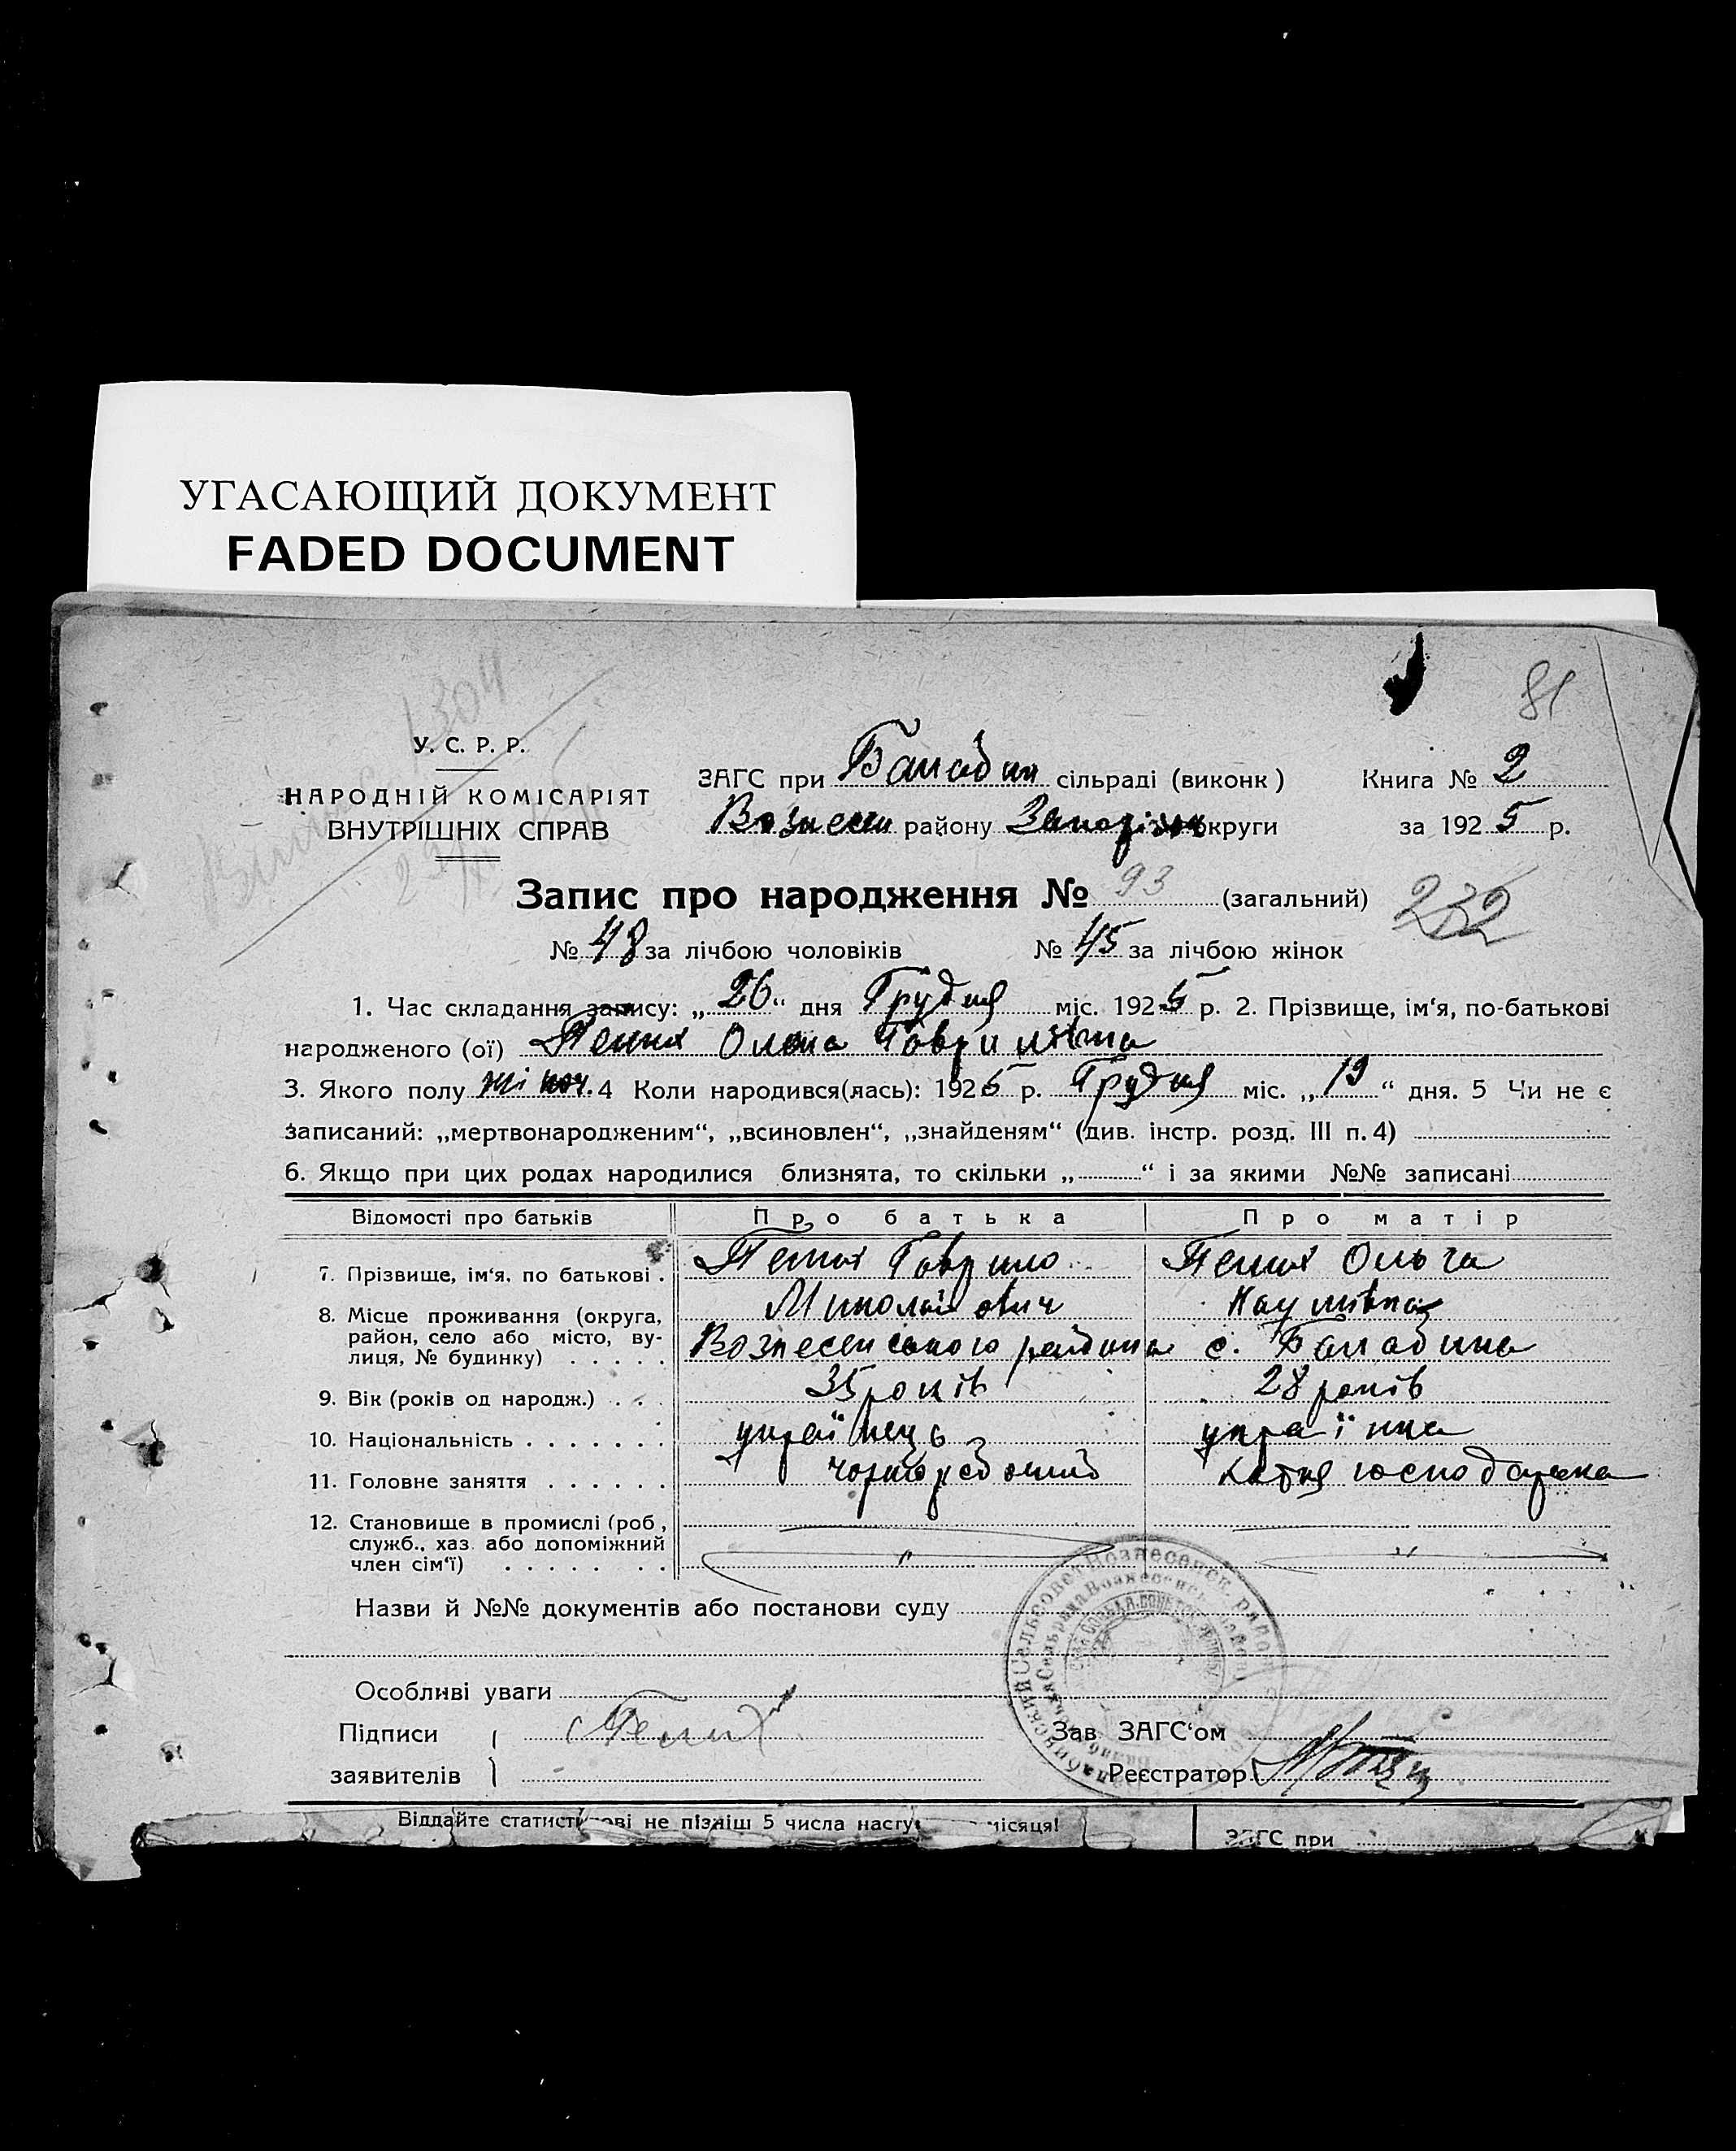 УГАСАЮЩИЙ ДОКУМЕНТ
FADED DOCUMENT
81
1304
У. С. Р. Р.
НАРОДНІЙ КОМІСАРІЯТ
ВНУТРІШНІХ СПРАВ
ЗАГС при Балабин сільраді (виконк) Книга № 2
Вознесен району Запоріжж округи за 1925 р.
Запис про народження № 93 (загальний) 232
№ 48 за лічбою чоловіків № 45 за лічбою жінок
1. Час складання запису: „26“ дня Грудня міс. 1925 р. 2. Прізвище, ім‘я, по-батькові
народженого (ої) Пелих Олена Гаврилівна
3. Якого полу жіноч. 4 Коли народився(лась): 1925 р. Грудня міс. „19“ дня. 5 Чи не є
записаний: „мертвонародженим“, „всиновлен“, „знайденям“ (див. інстр. розд. III п. 4)
6. Якщо при цих родах народилися близнята, то скільки „ “ і за якими №№ записані
Відомості про батьків Про батька Про матір
7. Прізвище, ім‘я, по батькові . Пелих Гаврило Пелих Ольга
Миколайович Наумівна
8. Місце проживання (округа,
район, село або місто, ву-
лиця, № будинку) . . . . . Вознесенського району с. Балабина
9. Вік (років од народж.) . . . 35 років 28 років
10. Національність . . . . . . . українець українка
11. Головне заняття . . . . . . чорноробочий хатня господарка
12. Становище в промислі (роб.,
служб., хаз. або допоміжний
член сім‘ї) . . . . . . . . " "
Назви й №№ документів або постанови суду
Особливі уваги
Підписи Пелих Зав ЗАГС‘ом
заявителів Реєстратор
Віддайте статистикові не пізніш 5 числа наступ місяця! ЗАГС при